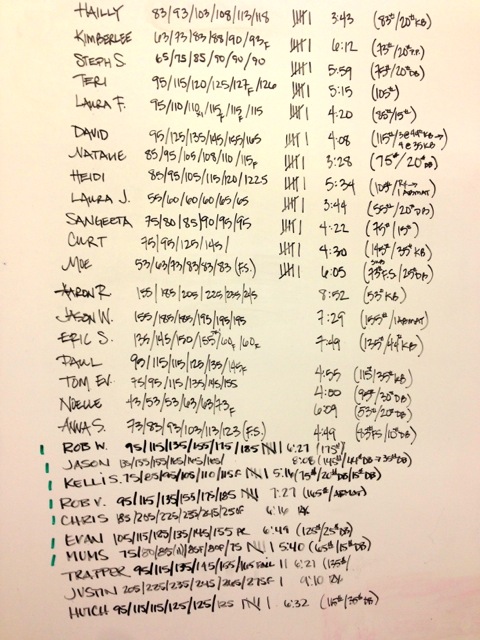 HAILLY 83/93/103/108/113/118 3:43 (83#/20#KB)
KIMBERLEE 63/73/83/88/90/93F 6:12
STEPH S. 65/75/85/90/90/90 5:59 (73#/20#DB)
TERI 95/115/120/125/127F/126 5:15 (105#)
LAURA F. 95/110/110/115F/115/115 4:20 (85#/15#)
DAVID 95/125/135/145/155/165 4:08
NATALIE 85/95/105/108/110/115F 3:28 (75#/20#DB)
HEIDI 85/95/105/115/120/122.5 5:34
LAURA J. 55/60/60/60/65/65 3:44 (55#/20#DB)
SANGEETA 75/80/85/90/95/95 4:22 (75#/15#)
CURT 75/95/125/145/ 4:30 (145#/35#KB)
MOE 53/63/73/83/83/83 (F.S.) 6:05
AARON R. 155/185/205/225/235/245 8:52 (53#KB)
JASON W. 155/185/185/195/195/195 7:29 (155#/1ABMAT)
ERIC S. 135/145/150/155/160F/160F 7:49 (135#/44#KB)
PAUL 95/115/115/125/135/145F 4:55 (115#/35#KB)
TOM EV. 75/95/115/135/145/155 4:50 (95#/30#DB)
NOELLE 43/53/53/63/63/73F 6:09 (53#/20#DB)
ANNA S. 73/83/93/103/113/123 (F.S.) 4:49 (83#FS/10#DB)
ROB W. 95/115/135/155/175/185 6:27 (175#)
JASON 8:08
KELLI S. 75/85/95/105/110/115F 5:16
ROB V. 95/115/135/155/175/185 7:27 (165#/ABMAT)
CHRIS 185/205/225/235/245/250F 6:16 RX
EVAN 105/115/125/135/145/155 PR 6:49 (125#/25#DB)
MUMS 5:40 (65#/15#DB)
TRAPPER 95/115/135/145/155/165 FAIL 6:21
JUSTIN 205/225/235/245/265/275F 9:10 RX
HUTCH 95/115/115/125/125/125 6:32